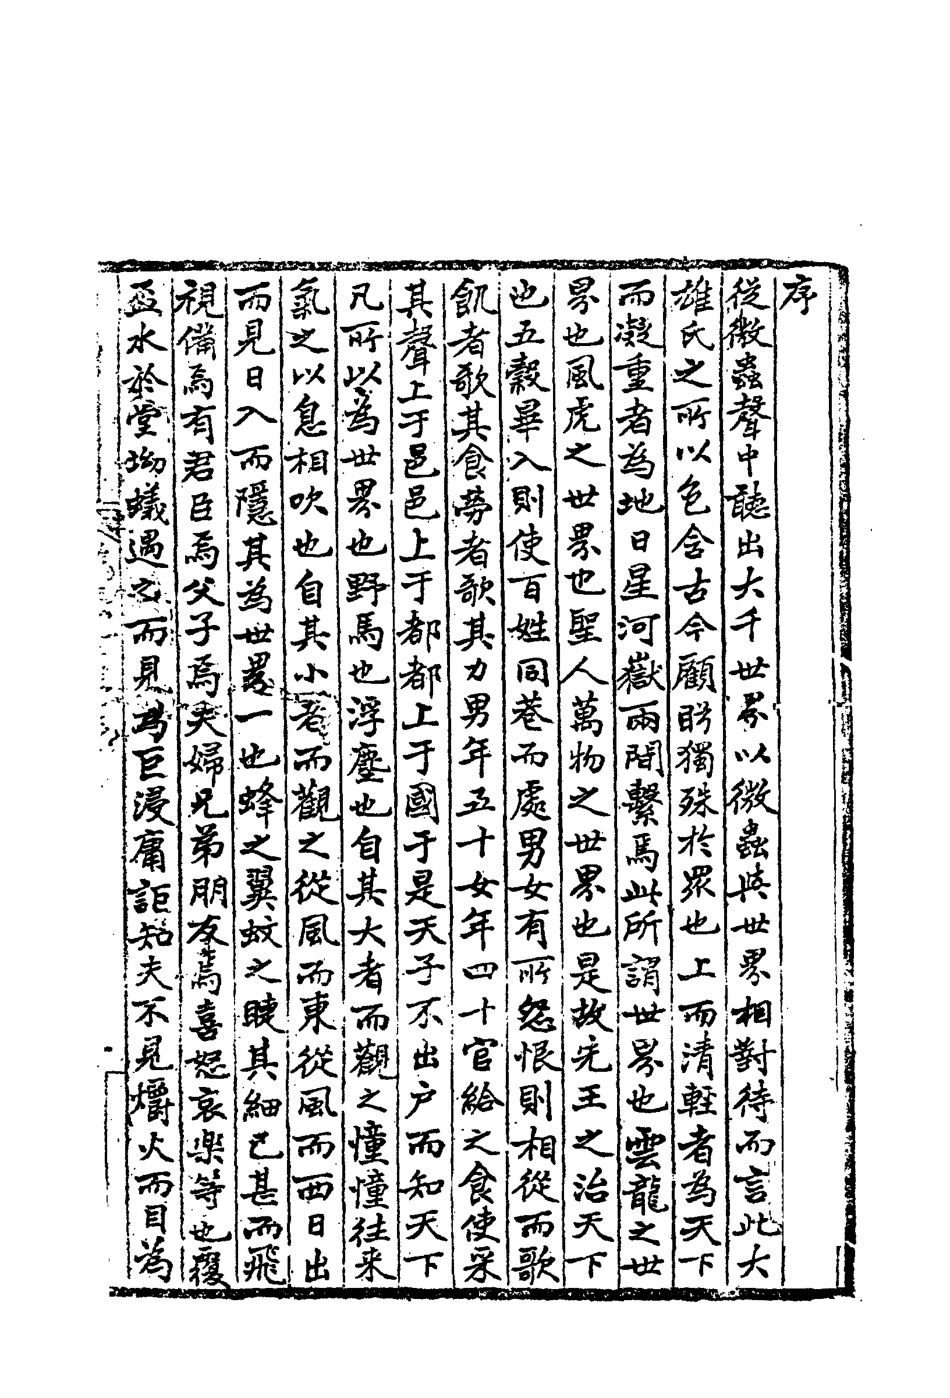 序
從微蟲聲中聽出大千世界以微蟲與世界相對待而言此大
雄氏之所以包含古今顧盼獨殊於眾也上而清輕者為天下
而凝重者為地日星河嶽兩間繫焉此所謂世界也雲龍之世
界也風虎之世界也聖人萬物之世界也是故先王之治天下
也五穀畢入則使百姓同巷而處男女有所怨恨則相從而歌
飢者歌其食勞者歌其力男年五十女年四十官給之食使采
其聲上于邑邑上于都都上于國于是天子不出户而知天下
凡所以為世界也野馬也浮塵也自其大者而觀之憧憧往来
氣之以息相吹也自其小者而觀之從風而東從風而西日出
而見日入而隱其為世界一也蜂之翼蚊之睫其細已甚而飛
視備焉有君臣焉父子焉夫婦兄弟朋友焉喜怒哀樂等也覆
盃水於堂坳蟻遇之而見為巨浸庸詎知夫不見爝火而目為